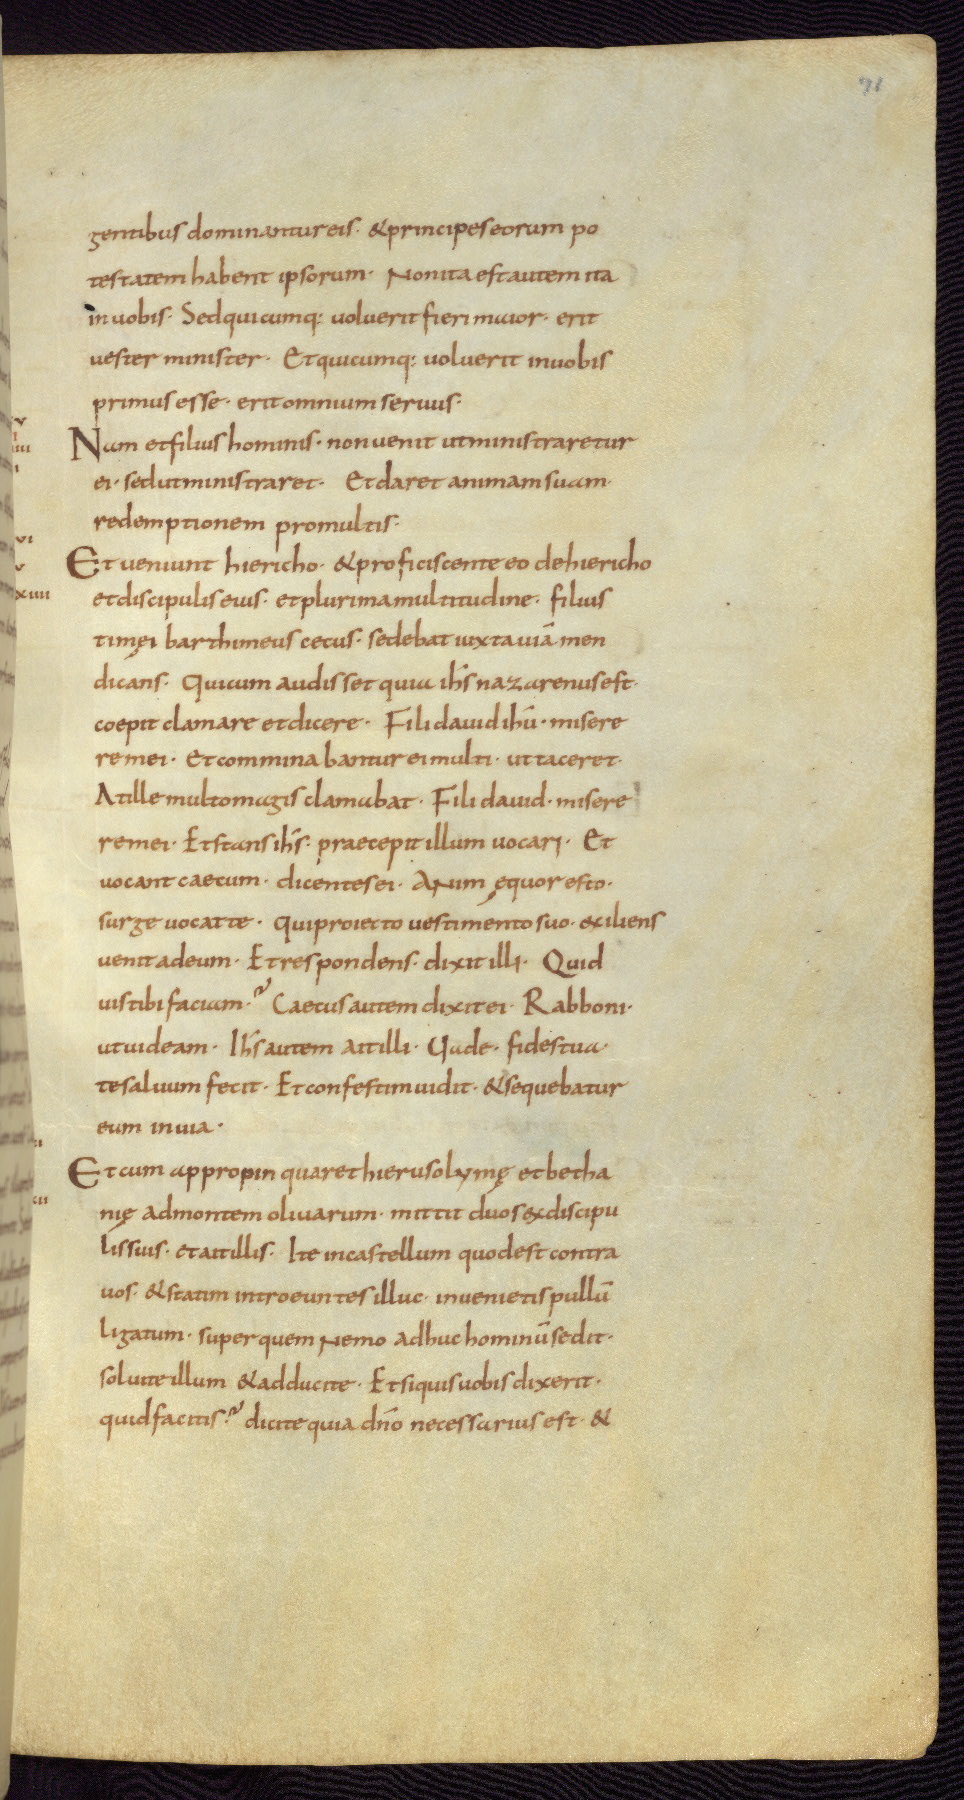 71
gentibus dominantur eis · & principes eorum po
testatem habent ipsorum · Non ita est autem ita
in uobis · Sed quicumq: uoluerit fieri maior · erit
uester minister · Et quicumq: uoluerit in uobis
primus esse · erit omnium seruus ·
Nam et filius hominis · non uenit ut ministraretur
ei · sed ut ministraret · Et daret animam suam ·
redemptionem pro multis ·
Et ueniunt hiericho · & proficiscente eo de hiericho
et discipulis eius · et plurima multitudine · filius
timęi barthimeus cecus · sedebat iuxta uiā men
dicans · Qui cum audisset quia ih̄s nazarenus est ·
coepit clamare et dicere · Fili dauid ihū · misere
re mei · Et comminabantur ei multi · ut taceret ·
At ille multo magis clamabat · Fili dauid · misere
re mei · Et stans ih̄s · praecepit illum uocari · Et
uocant caecum · dicentes ei · Anim ęquor esto ·
surge uocat te · Qui proiecto uestimento suo · exiliens
uenit ad eum · Et respondens · dixit illi · Quid
uis tibi faciam ·? Caecus autem dixit ei · Rabboni ·
ut uideam · Ih̄s autem ait illi · Uade · fides tua ·
te saluum fecit · Et confestim uidit · & sequebatur
eum in uia ·
Et cum appropinquaret hierusolymę et betha
nię ad montem oliuarum · mittit duos ex discipu
lis suis · et ait illis · Ite in castellum quod est contra
uos · & statim introeuntes illuc · inuenietis pullū
ligatum · super quem nemo adhuc hominū sedit ·
soluite illum & adducite · Et si quis uobis dixerit ·
quid facitis ·? dicite quia dn̄o necessarius est · &